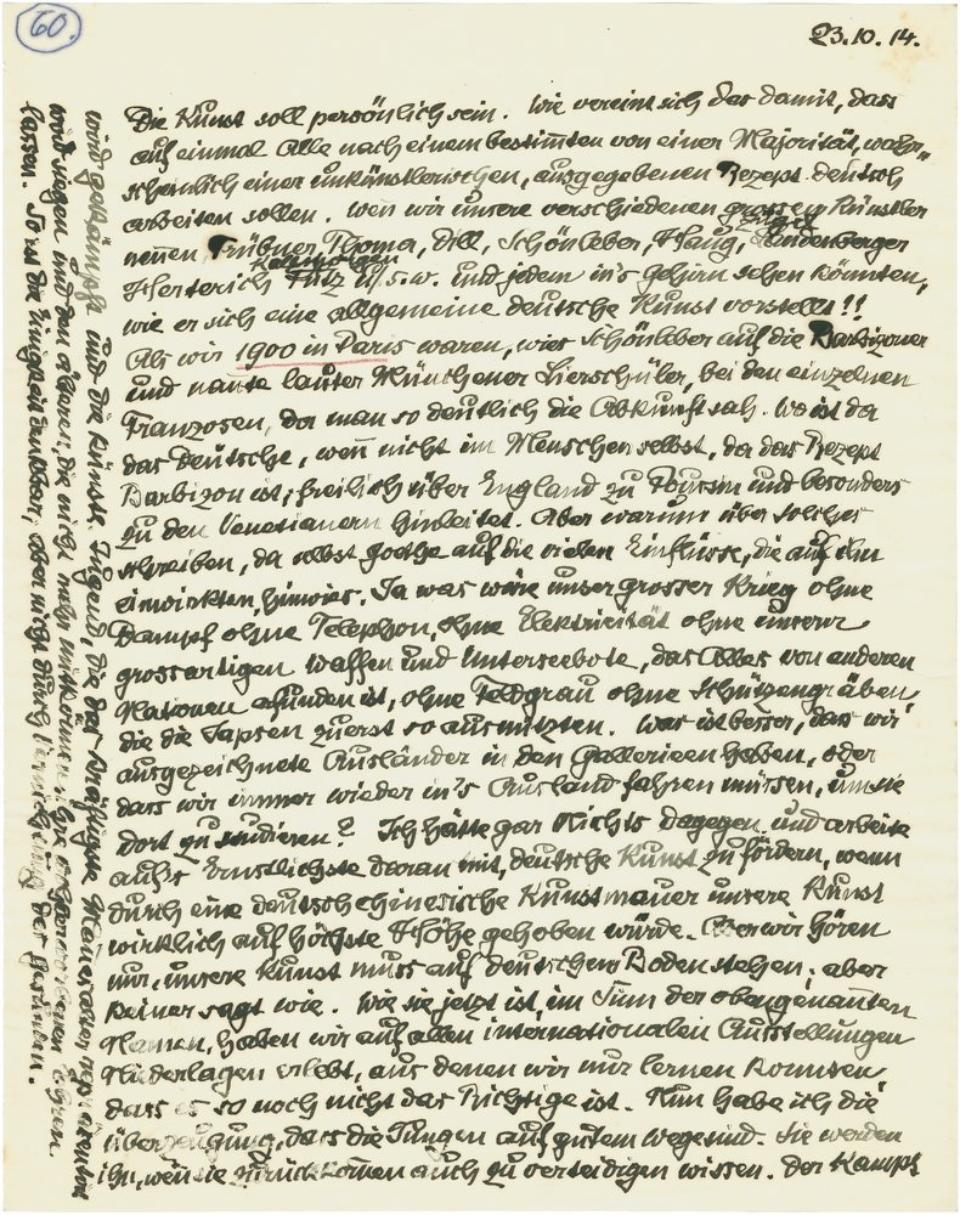 60.
23.10.14.
Die Kunst soll persönlich sein. Wie vereint sich das damit, dass
auf einmal Alle nach einem bestim̄ten von einer Majorität, wahr„
scheinlich einer unkünstlerischen, ausgegebenen Rezept deutsch
arbeiten sollen. Wen̄ wir unsere verschiedenen grossen Künstler
Zügel
nen̄en Trübner, Thoma, Dill, Schönleber, Haug, Landenberger
Kalkreuth
Herterich Putz u/s.w. und jedem in's Gehirn sehen könnten,
wie er sich eine allgemeine deutsche Kunst vorstellt!!
Als wir 1900 in Paris waren, wies Schönleber auf die Barbizoner
und nan̄te lauter Münchener Lierschüler, bei den einzelnen
Franzosen, da man so deutlich die Abkunft sah. Wo ist da
das Deutsche, wen̄ nicht im Menschen selbst, da das Rezept
Barbizon ist; freilich über England zu Poussin und besonders
zu den Venetianern hinleitet. Aber warum über solches
schreiben, da selbst Goethe auf die vielen Einflüsse, die auf ihn
einwirkten, hinwies. Ja was wäre unser grosser Krieg ohne
Dampf ohne Telephon, ohne Elektricität ohne unsere
grossartigen Waffen und Unterseebote, das Alles von anderen
Nationen erfunden ist, ohne Feldgrau ohne Schützengräben,
die die Japsen zuerst so ausnützten. Was ist besser, dass wir
ausgezeichnete Ausländer in den Gallerieen haben, oder
dass wir immer wieder in's Ausland fahren müssen, um sie
dort zu studieren? Ich hätte gar Nichts dagegen und arbeite
auf's Ernstlichste daran mit, deutsche Kunst zu fördern, wenn
durch eine deutschchinesische Kunstmauer unsere Kunst
wirklich auf höchste Höhe gehoben würde. Aber wir hören
nur, unsere Kunst muss auf deutschem Boden stehen; aber
keiner sagt wie. Wie sie jetzt ist, im Sinn der obengenan̄ten
Namen, haben wir auf allen internationalen Ausstellungen
Niederlagen erlebt, aus denen wir nur lernen konnten
dass es so noch nicht das Richtige ist. Nun habe ich die
überzeugung, dass die Jungen auf gutem Wege sind. Sie werden
ihn, wen̄ sie zurückkom̄en auch zu verteidigen wissen. Der Kampf
wird gekämpft und die Künste. Jugend, die das kräftigste Mannesalter repräsentirt
wird siegen und den älteren, die nicht mehr mitkönnen ihre erworbenen Ehren
lassen. So ist die Einigkeit denkbar, aber nicht durch der Gesinten.